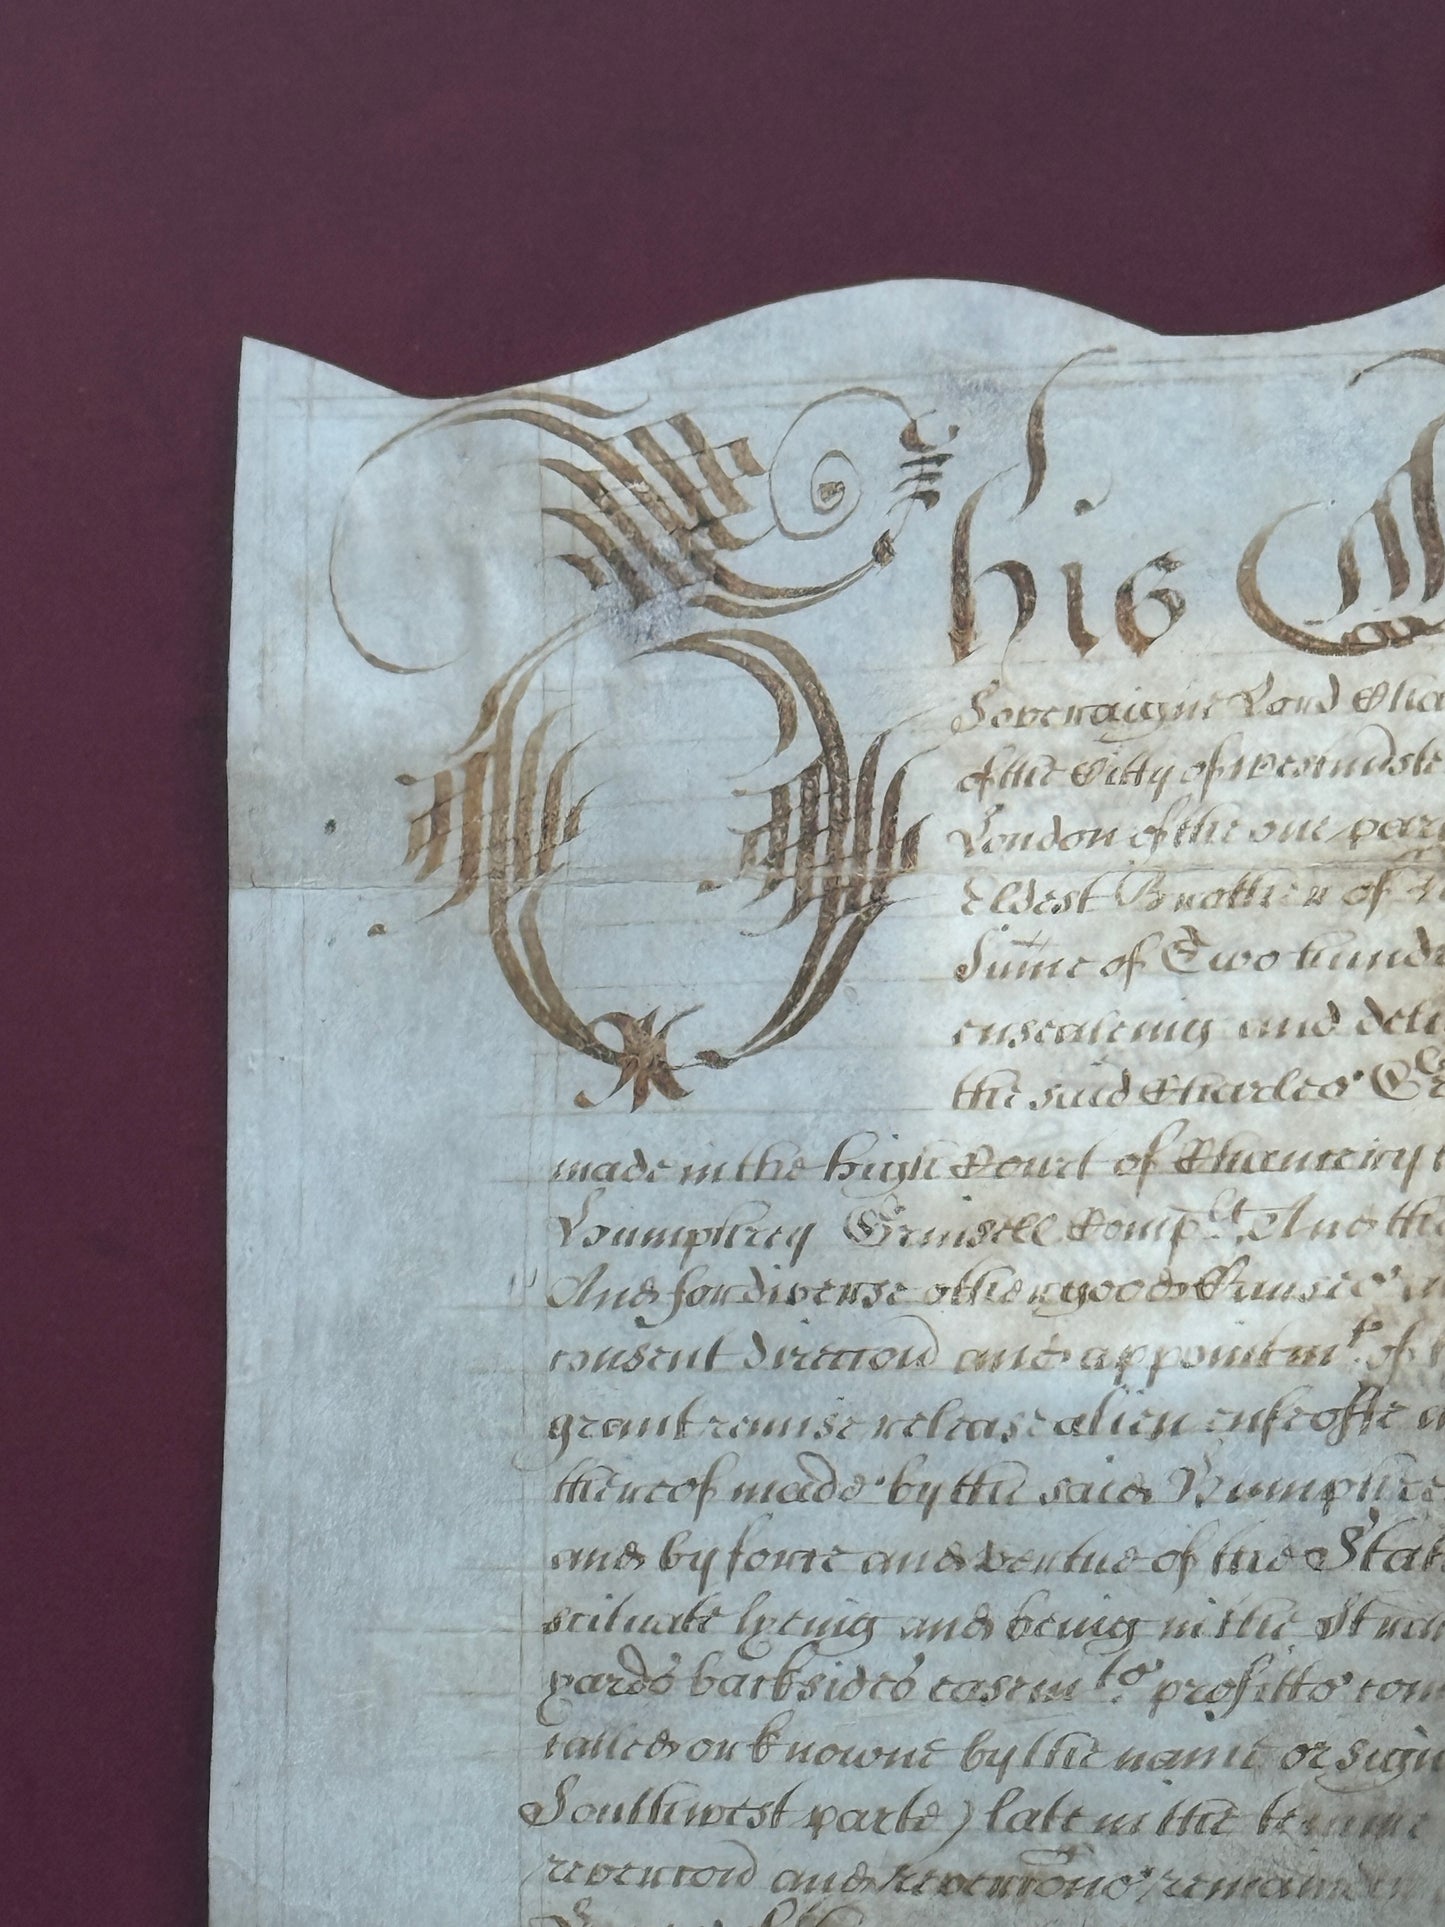 This
Soveraigne Lord Cha
of the Citty of Westminste
London of the one par
Eldest Brother of
Sume of Two hundr
ensealeing and deli
the said Charles
made in the high Court of Chancery
Humphrey Grinsell Comp<sup>lt</sup>. And the
And for diverse other good Causes
consent direccon and appointm<sup>t</sup>. of
grant remise release alien enfeoffe a
thereof made by the said Humphre
and by force and vertue of the Stat
scituate lyeing and being in the Stra
yards backsides easem<sup>ts</sup>. profitts com
called or knowne by the name or sign
Southwest parte) late in the tenure
revercon and revercons remainder